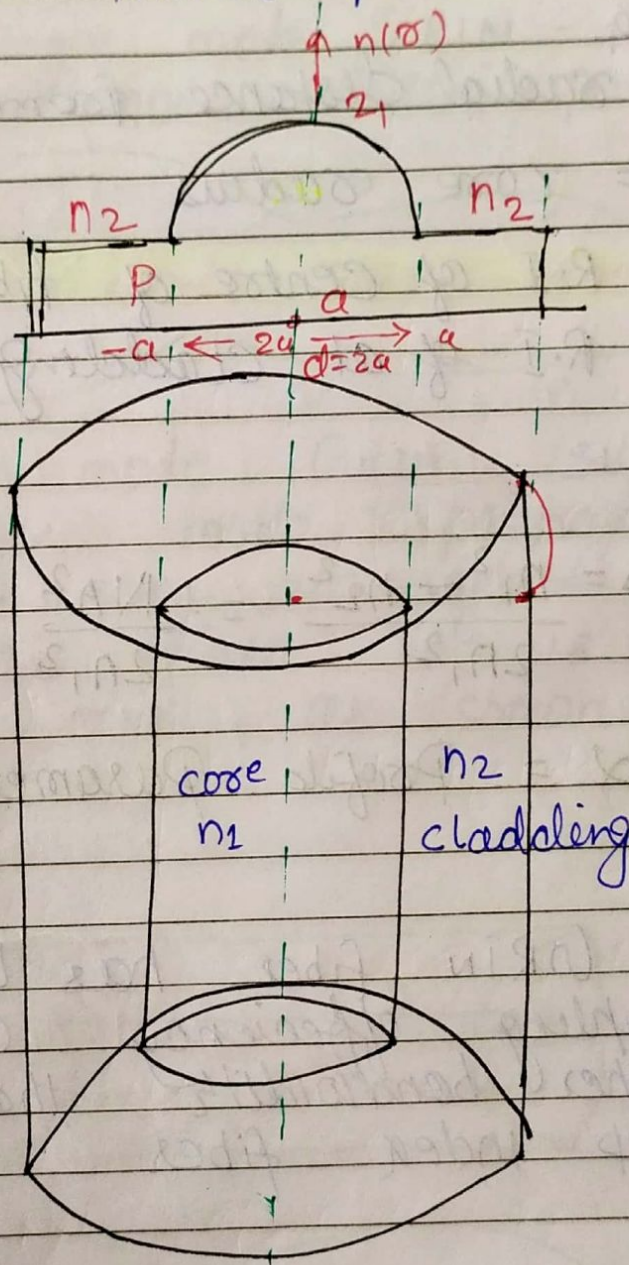 n(r)
21
n2 n2
P
a
-a ← 2a → a
d=2a
core n2
n1 cladding